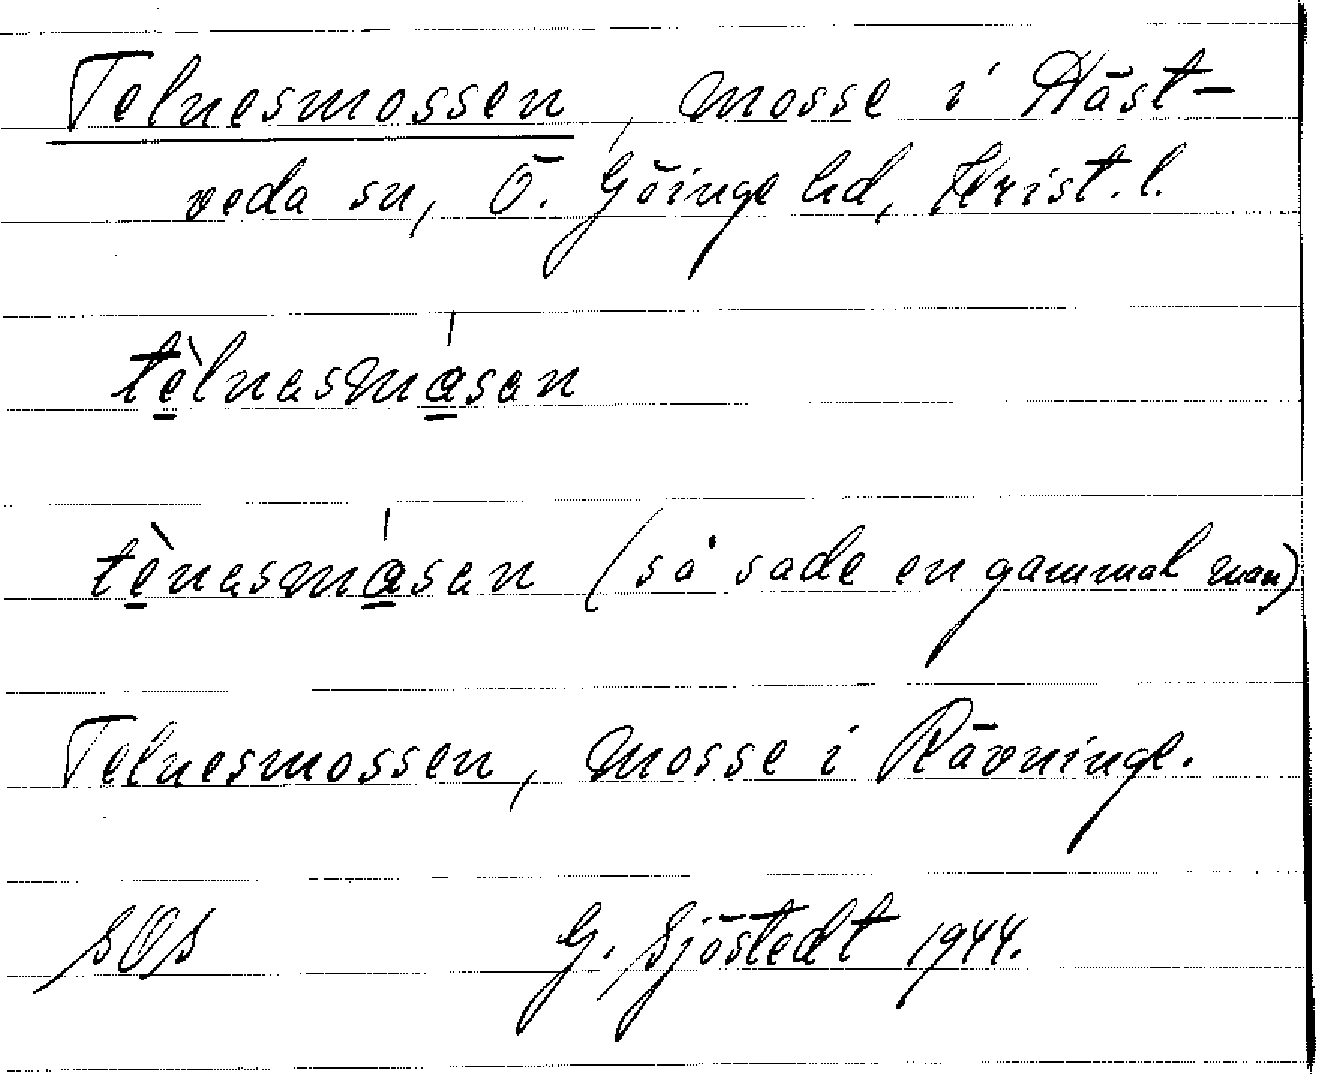 Telnesmossen, mosse i Häst-
veda sn, Ö. Göinge hd, Krist. l.
tèlnasmásan
tènasmásan (så sade en gammal man)
Telnesmossen, mosse i Rävninge.
sOs G. Sjöstedt 1944.